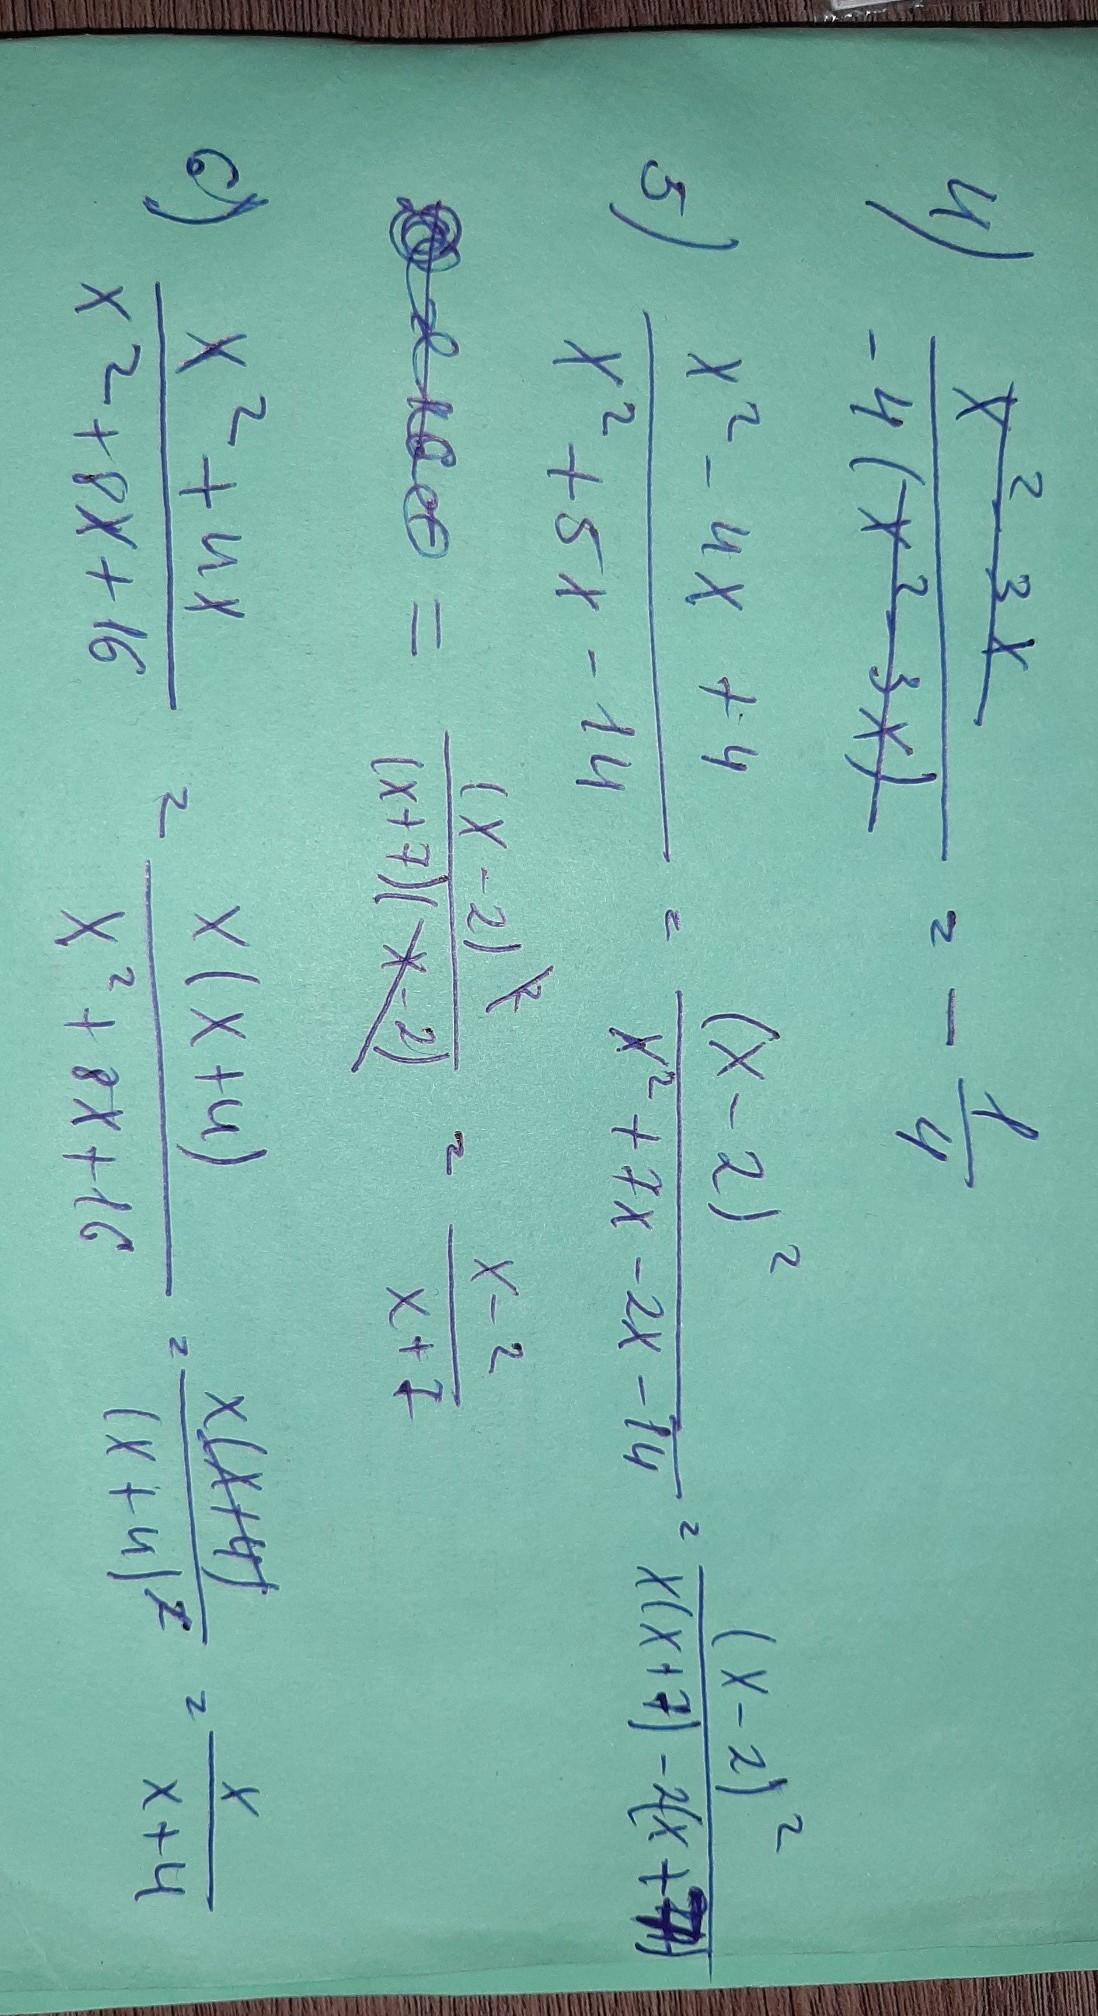 4) x² - 3x / -4(x² - 3x) = - 1/4
5) x² - 4x + 4 / x² + 5x - 14 = (x - 2)² / x² + 7x - 2x - 14 = (x - 2)² / x(x + 7) - 2(x + 7)
= (x - 2)² / (x + 7)(x - 2) = x - 2 / x + 7
6) x² + 4x / x² + 8x + 16 = x(x + 4) / x² + 8x + 16 = x(x + 4) / (x + 4)² = x / x + 4